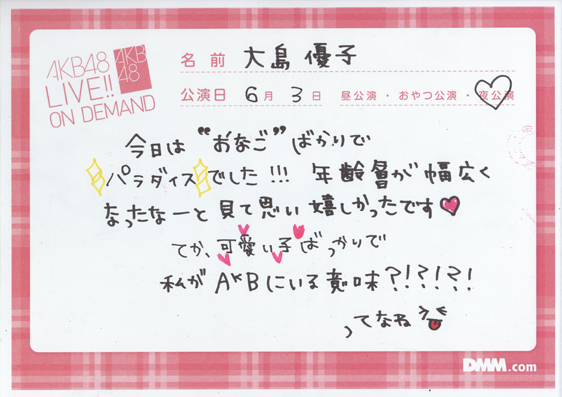 AKB48
LIVE!!
ON DEMAND
AKB
48
名前 大島優子
公演日 6月3日 昼公演・おやつ公演・夜公演
今日は"おなご"ばかりで
パラダイスでした!!! 年齢層が幅広く
なったなーと見て思い嬉しかったです
てか、可愛い子ばっかりで
私がAKBにいる意味?!?!?!
ってなね
DMM.com